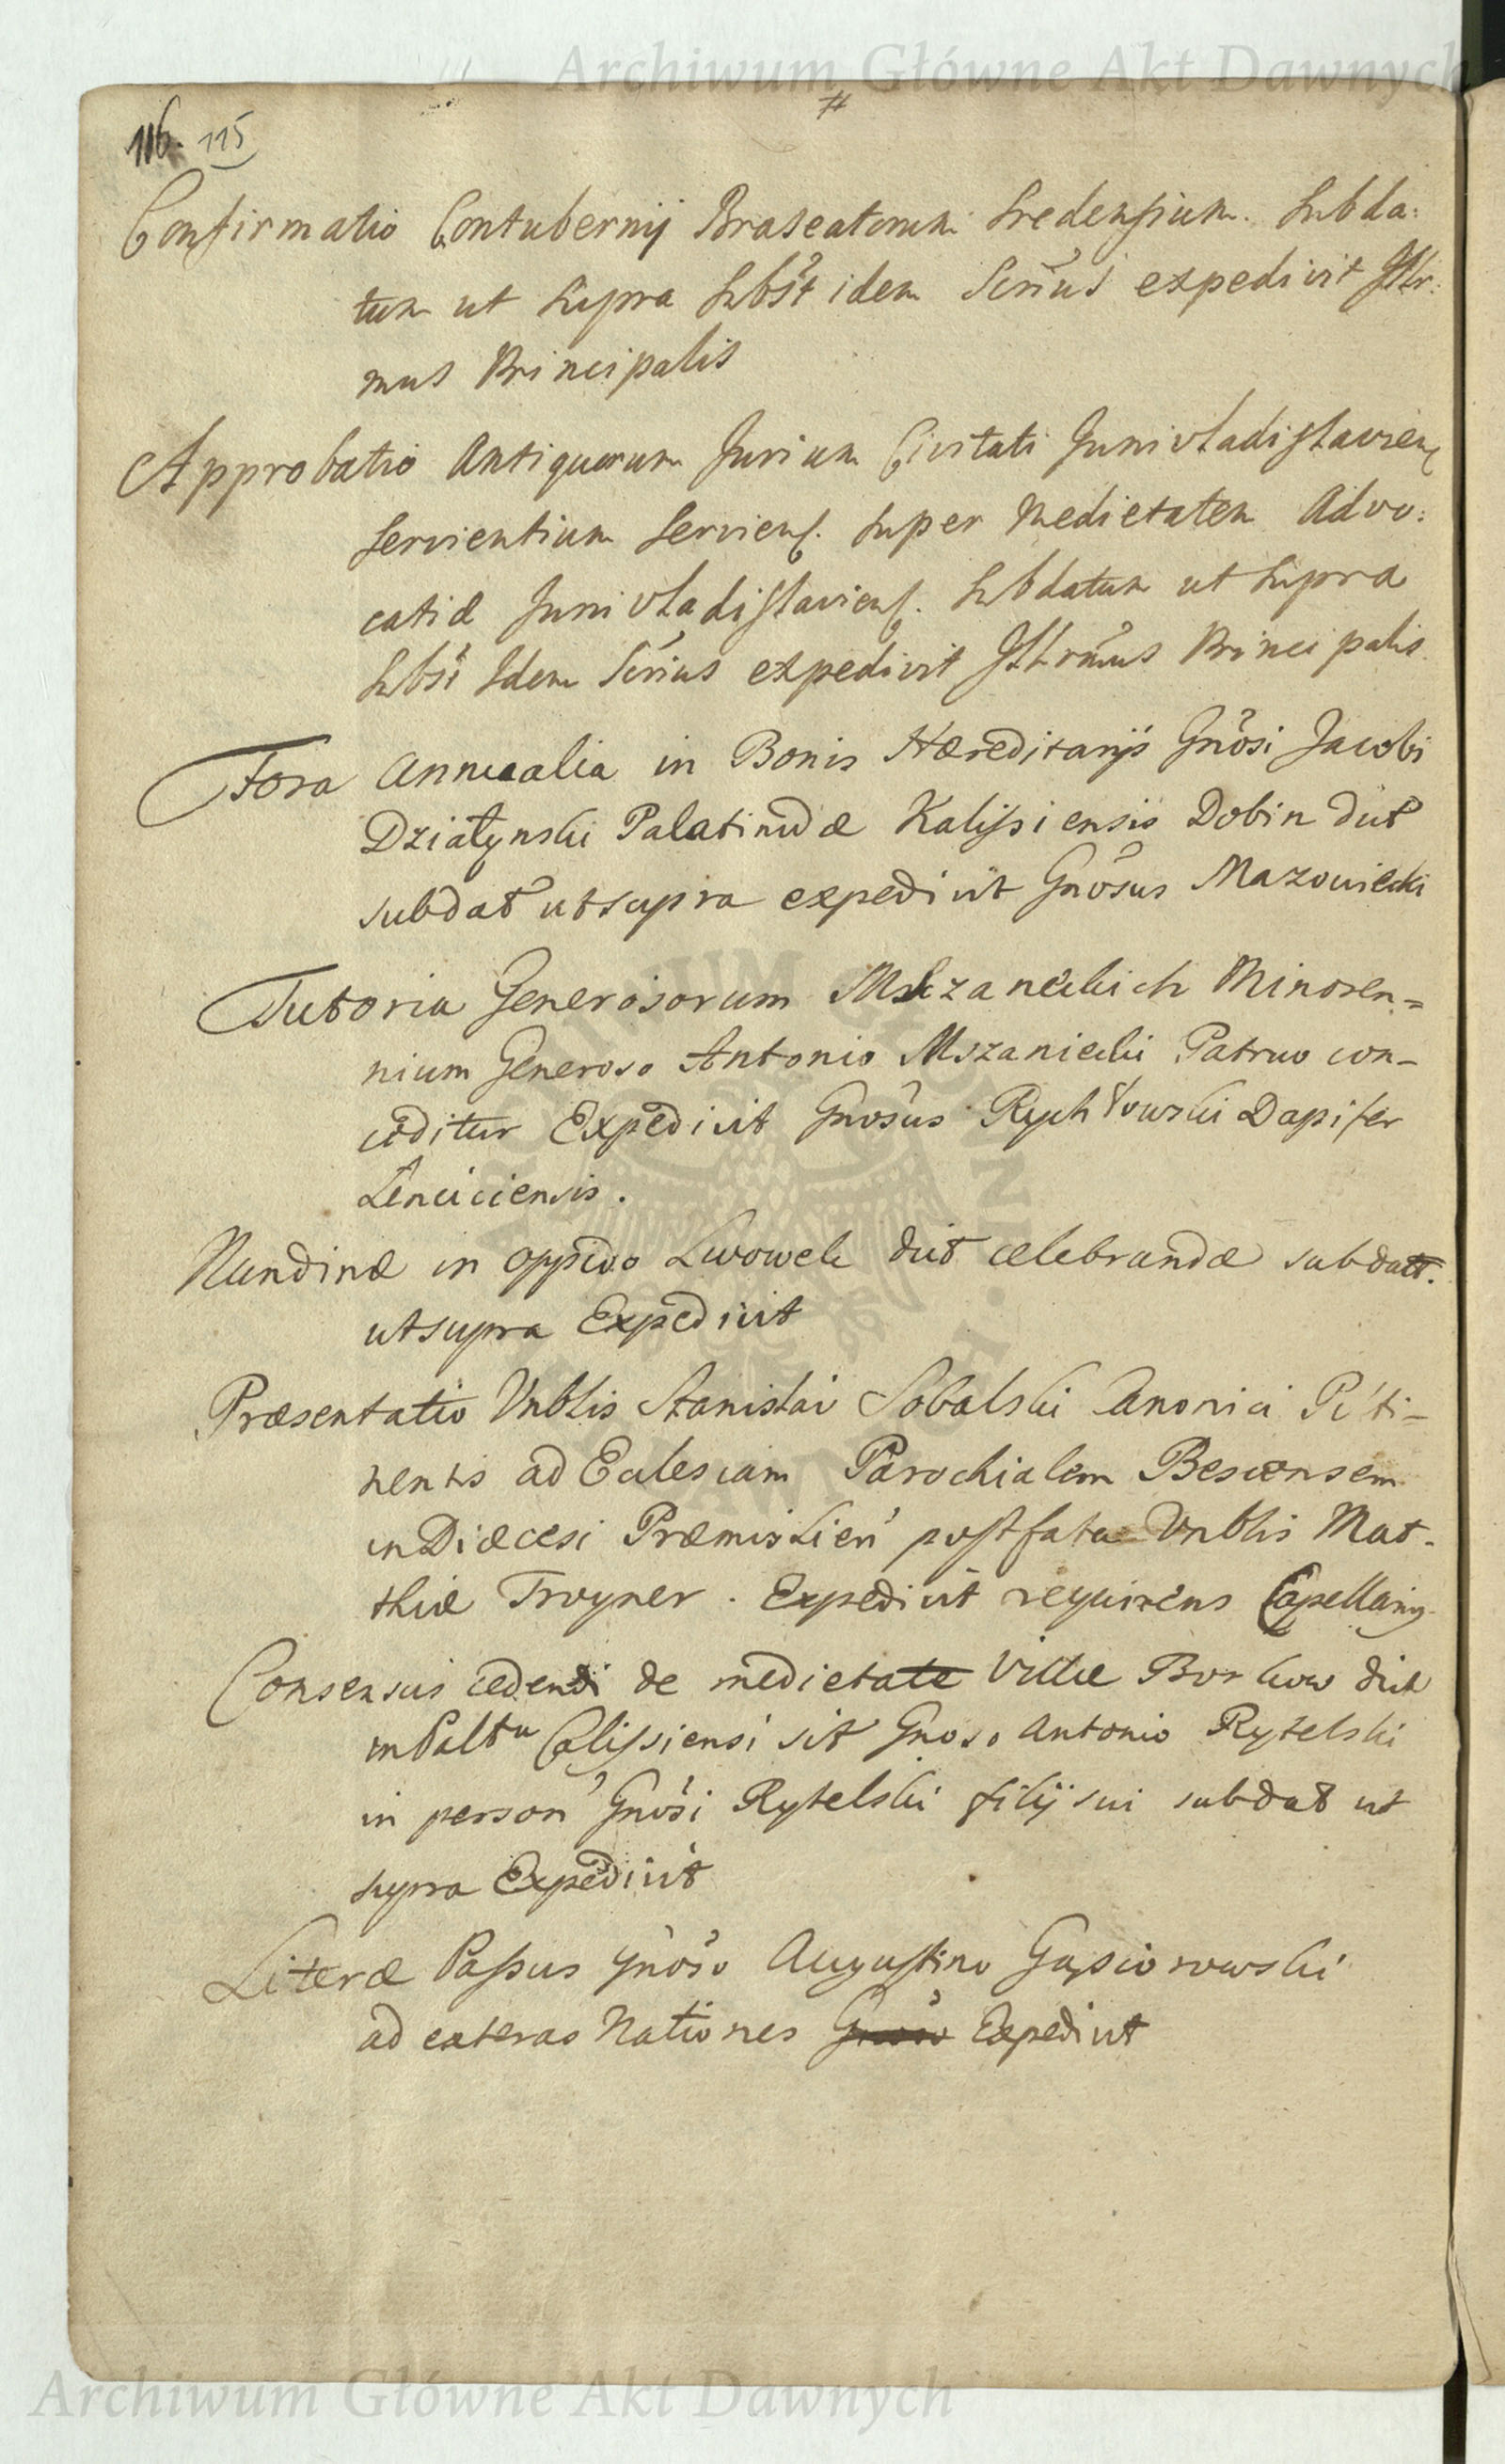 Archiwum Główne Akt Dawnych
#
116. 115
Confirmatio Contubernij Braseatorum Sredensium. Subda:
tum ut supra Subst idem Serius expedivit Illr:
mus Principalis
Approbatio Antiquorum Jurium Civitati Junivladislavien
servientium serviens. super Medietatem Advo:
catiæ Junivladislaviens. Subdatum ut supra
Subst Idem Serius expedivit Illrmus Principalis
Fora Annualia in Bonis Hæreditarijs Gnosi Jacobi
Działynski Palatinidæ Kalissiensis Dobin dict
subdat ut supra expedivit Gnosus Mazowiecki
Tutoria Generosorum Mszaneckich Minoren=
nium Generoso Antonio Mszaniecki Patruo con-
ceditur Expedivit Gnosus Rychłowski Dapifer
Lenciciensis.
Nundinæ in oppido Lwowek dict celebrandæ subdatt.
ut supra Expedivit
Præsentatio Vnblis Stanislai Sobalski Canonici Pilti-
nensis ad Ecclesiam Parochialem Bescensem
in Diæcesi Præmislien post fata Vnblis Mat-
thiæ Troyner. Expedivit requirens Capellany
Consensus cedendi de medietate Villæ Borkow dict
in Paltu Calissiensi sit Gnoso Antonio Rytelski
in person Gnosi Rytelski filij sui subdat ut
supra Expedivit
Literæ Passus Gnoso Augustino Gąsiorowski
ad exteras Nationes Gnoso Expedivit
Archiwum Główne Akt Dawnych